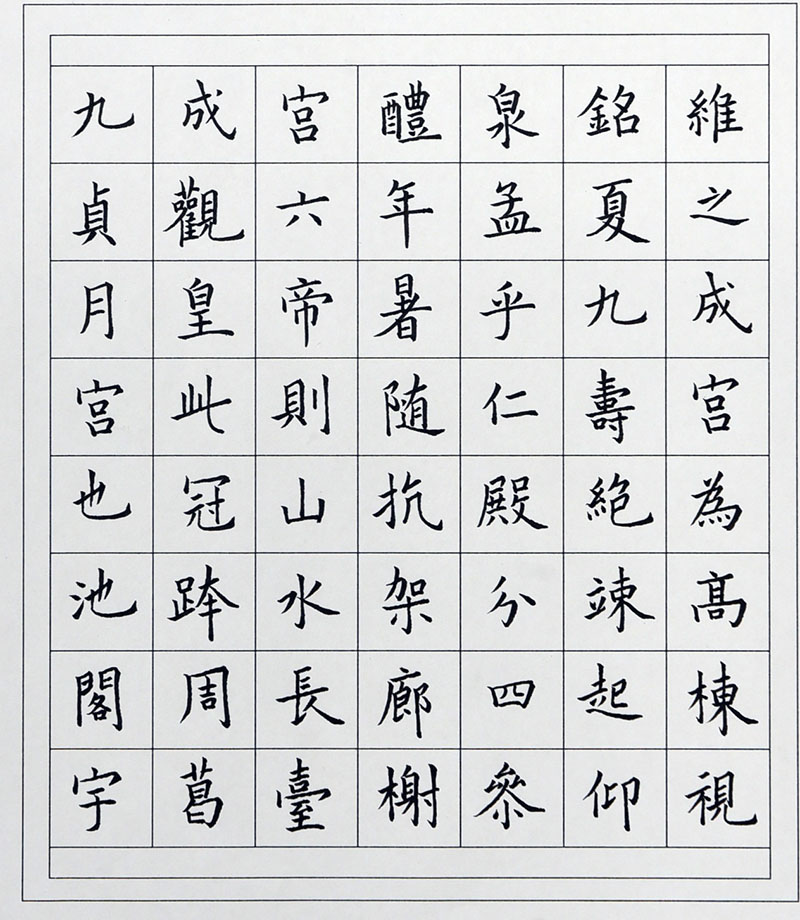 九成宮醴泉銘維
貞觀六年孟夏之
月皇帝暑乎九成
宮此則随仁壽宮
也冠山抗殿絶為
池跨水架分竦髙
閣周長廊四起棟
宇葛臺榭叅仰視